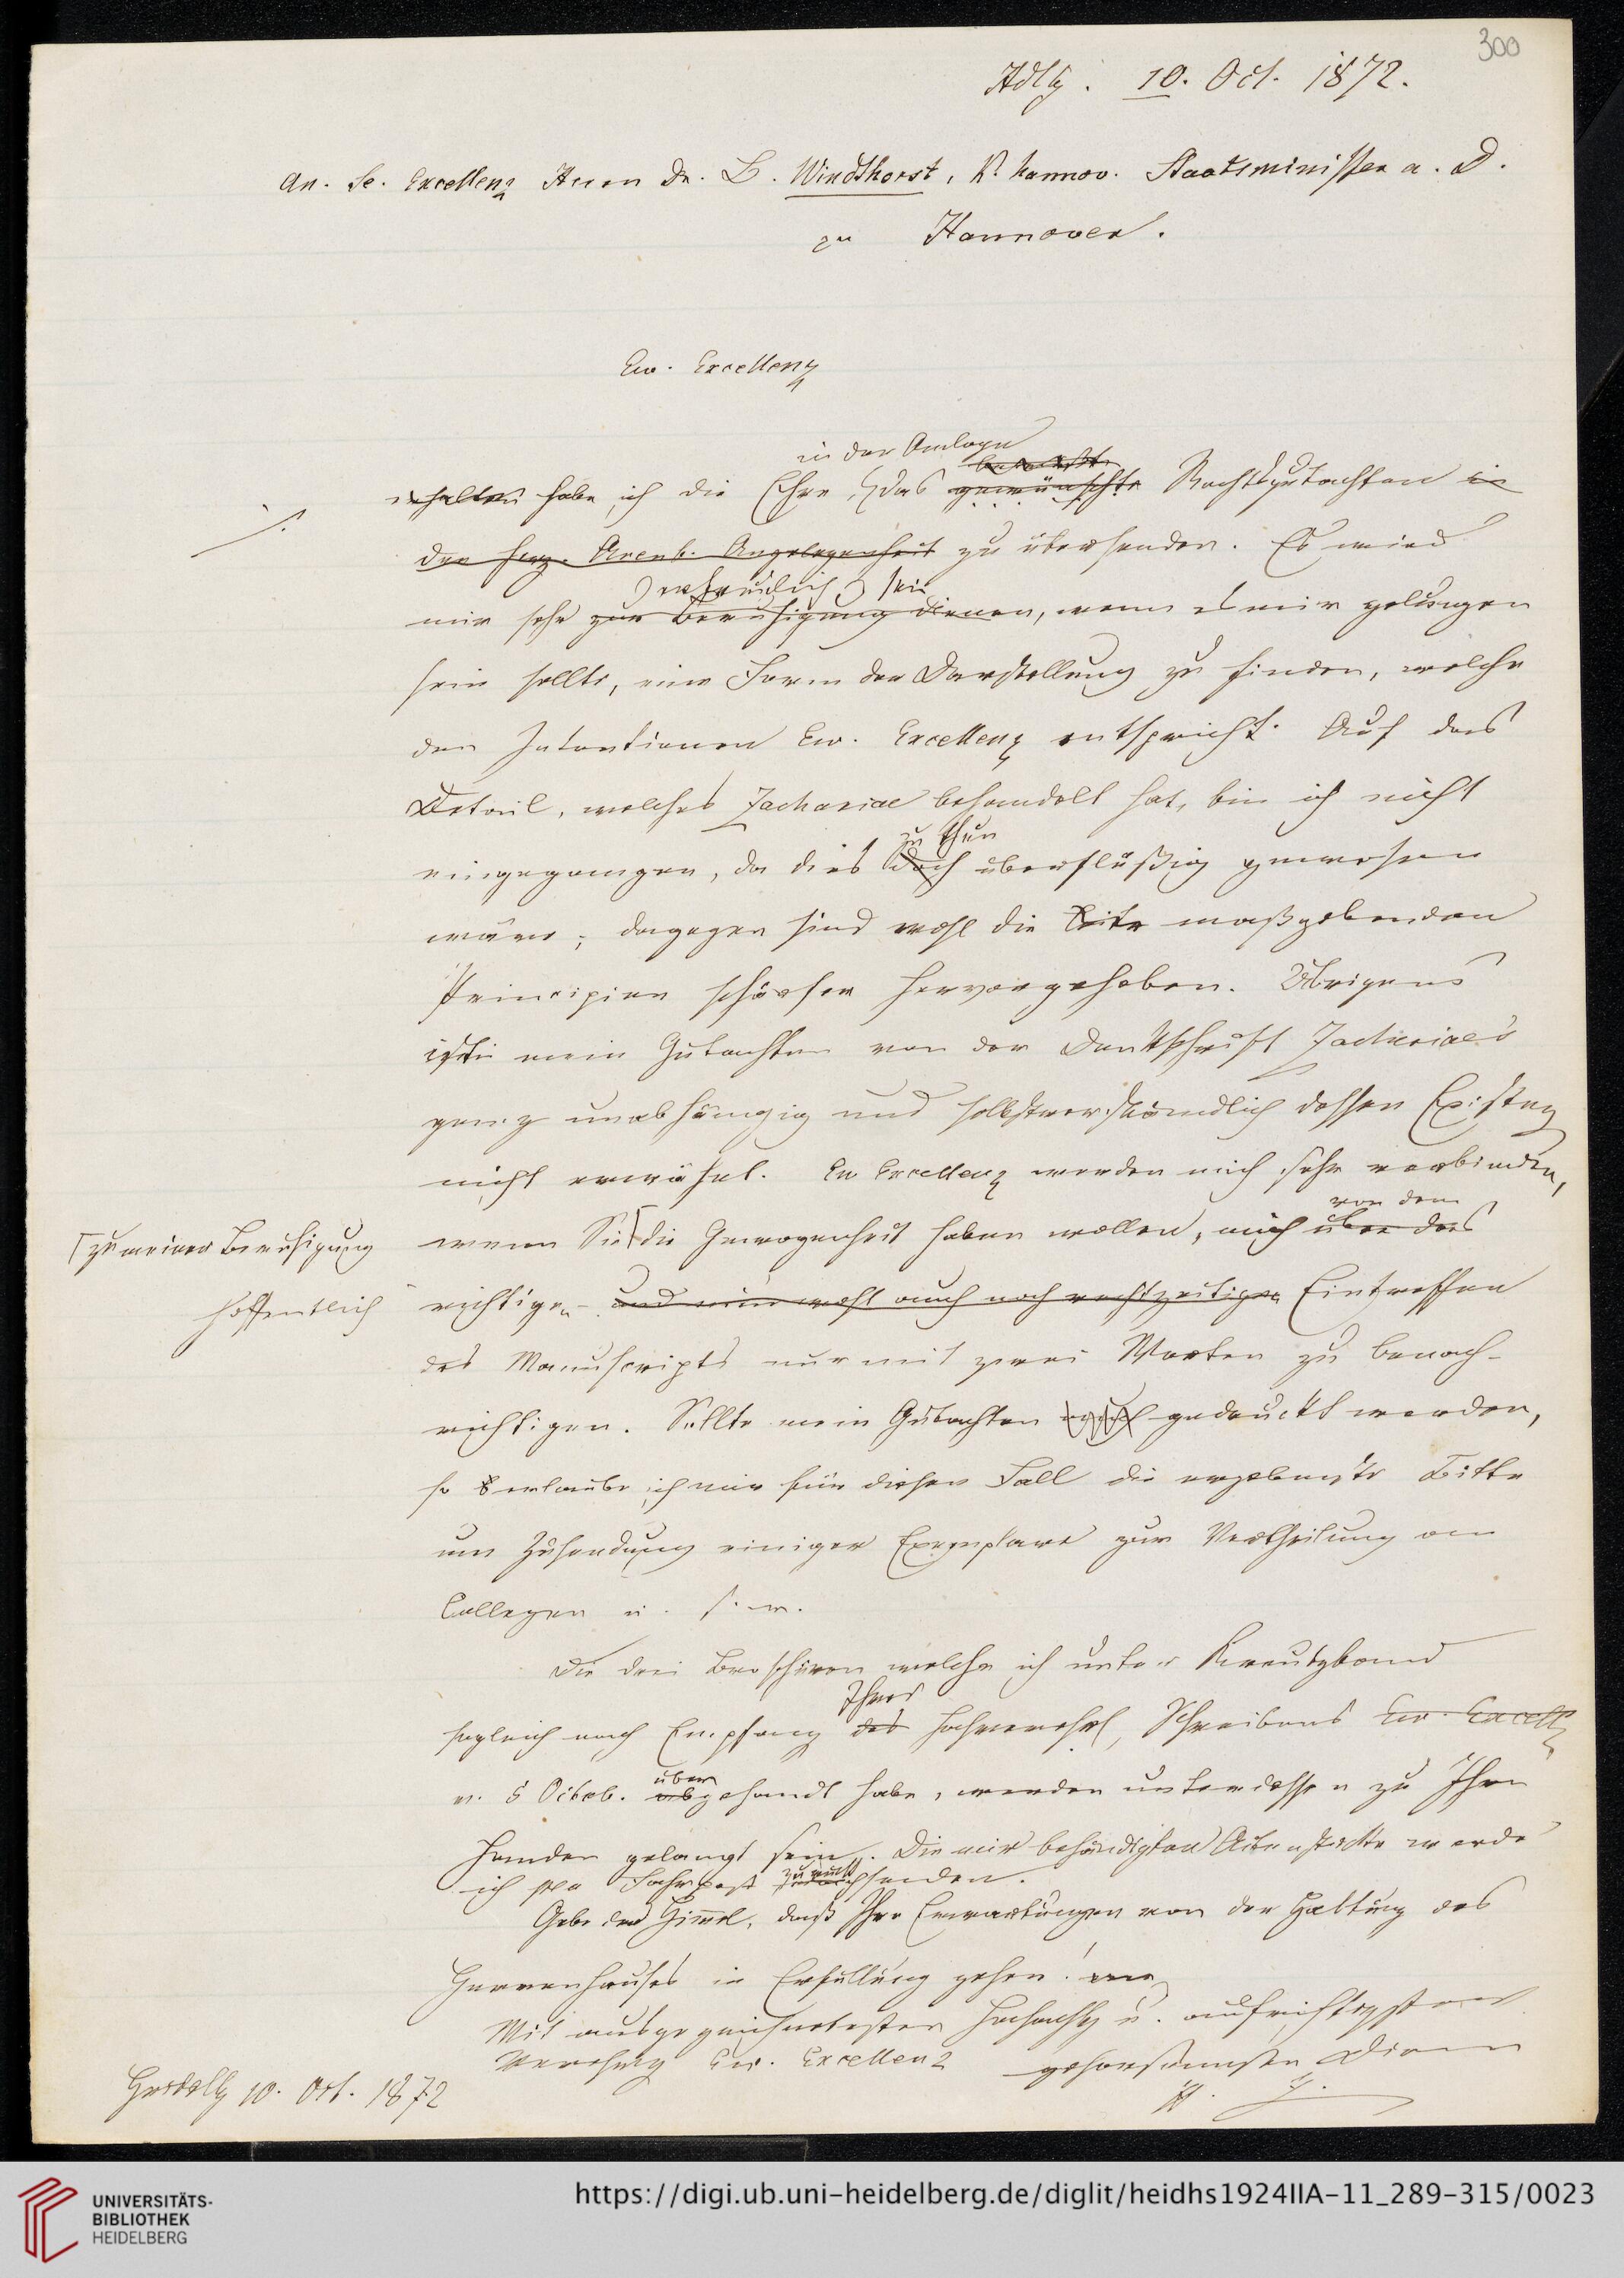 300
Hdlbg. 10. Oct. 1872.
An Se. Excellenz Herrn Dr. L. Windthorst, K. hannov. Staatsminister a. D.
zu Hannover.
Ew. Excellenz
in der Anlage
habe ich die Ehre, das gewünschte Rechtsgutachten in
der herz. Arenb. Angelegenheit zu übersenden. Es wird
erfreulich sein
mir sehr zur Beruhigung dienen, wenn es mir gelungen
sein sollte, eine Form der Darstellung zu finden, welche
den Intentionen Ew. Excellenz entspricht. Auf das
Detail, welches Zachariae behandelt hat, bin ich nicht
zu thun
eingegangen, da dies doch überflüßig gewesen
wäre; dagegen sind wohl die maßgebenden
Principien schärfer hervorgehoben. Übrigens
ist mein Gutachten von der Denkschrift Zachariae's
ganz unabhängig und selbstverständlich dessen Existenz
nicht erwähnt. Ew Excellenz werden mich sehr verbinden,
von dem
wenn Sie die Gewogenheit haben wollen, mich über das
zu meiner Beruhigung
richtigen und nun wohl auch noch rechtzeitigen Eintreffen
hoffentlich
des Manuscripts nur mit zwei Worten zu benach-
richtigen. Sollte mein Gutachten gedruckt werden,
so erlaube ich mir für diesen Fall die ergebenste Bitte
um Zusendung einiger Exemplare zur Vertheilung an
Collegen u. s. w.
Die drei Broschüren welche ich unter Kreutzband
Ihres
sogleich nach Empfang des hochverehrl. Schreibens Ew. Excellz
über
v. 5 Octob. abgesandt habe, werden unterdessen zu Ihren
Handen gelangt sein. Die mir behändigten Aktenstücke werde
ich per Fahrpost zurücksenden.
Gebe der Himmel, daß Ihre Erwartungen von der Haltung des
Herrenhauses in Erfüllung gehen!
Mit ausgezeichnetster Hochachtg u. aufrichtigster
Verehrg Ew. Excellenz gehorsamster Diener
H. Z.
Heidelbg 10. Oct. 1872
UNIVERSITÄTS-
BIBLIOTHEK
HEIDELBERG
https://digi.ub.uni-heidelberg.de/diglit/heidhs1924IIA-11_289-315/0023